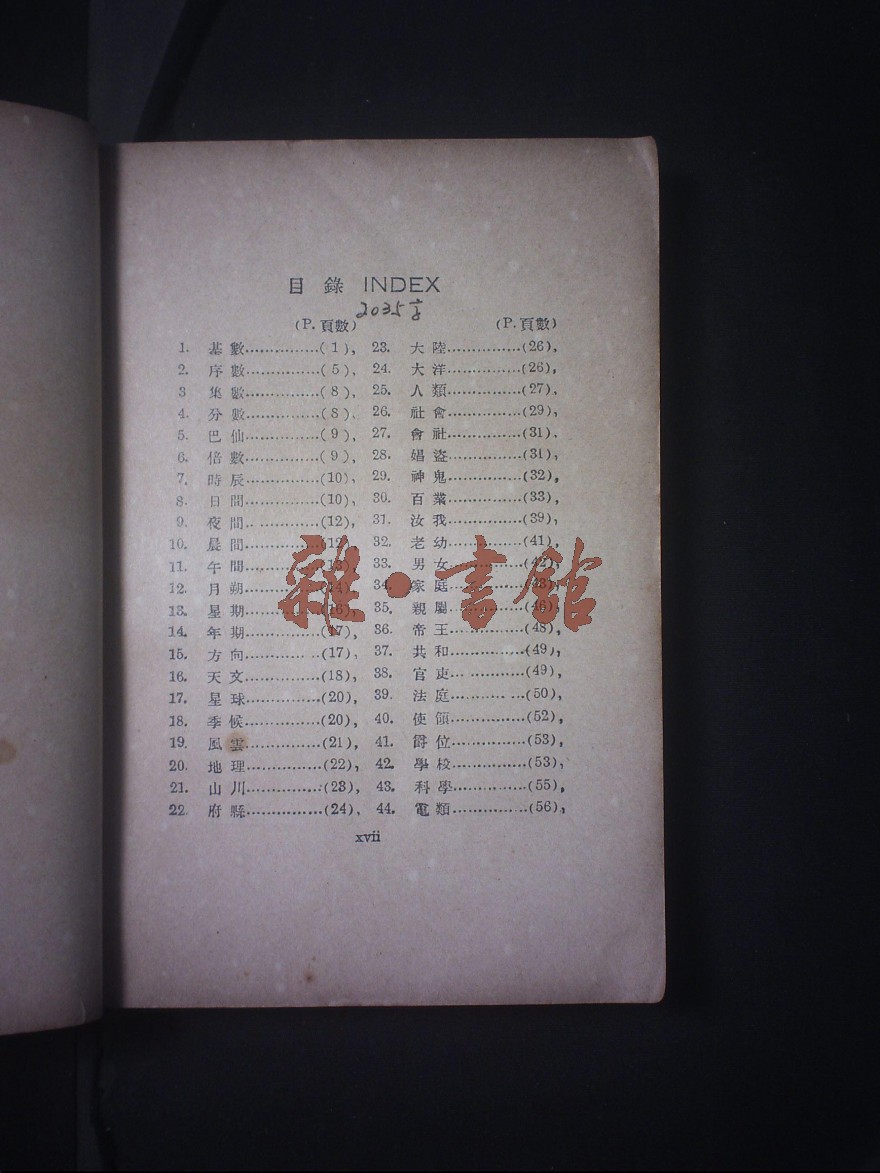 目錄 INDEX
2035字
(P. 頁數)
1. 基數...............( 1 ),
2. 序數...............( 5 ),
3 集數...............( 8 ),
4. 分數...............( 8 ),
5. 巴仙...............( 9 ),
6. 倍數...............( 9 ),
7. 時辰...............(10),
8. 日間...............(10),
9. 夜間.. ............(12),
10. 晨間...............(12),
11. 午間...............(13),
12. 月朔...............(14),
13. 星期...............(16),
14. 年期...............(17),
15. 方向............ ..(17),
16. 天文...............(18),
17. 星球...............(20),
18. 季候...............(20),
19. 風雲...............(21),
20. 地理...............(22),
21. 山川...............(23),
22. 府縣...............(24),
(P. 頁數)
23. 大陸...............(26),
24. 大洋...............(26),
25. 人類...............(27),
26. 社會...............(29),
27. 會社...............(31),
28. 娼盜...............(31),
29. 神鬼...............(32),
30. 百業...............(33),
31. 汝我...............(39),
32. 老幼...............(41),
33. 男女...............(42),
34. 家庭...............(43),
35. 親屬...............(46),
36. 帝王...............(48),
37. 共和...............(49),
38. 官吏... ...........(49),
39. 法庭.......... ...(50),
40. 使領...............(52),
41. 爵位...............(53),
42. 學校...............(53),
43. 科學...............(55),
44. 電類...............(56),
xvii
雜·書館